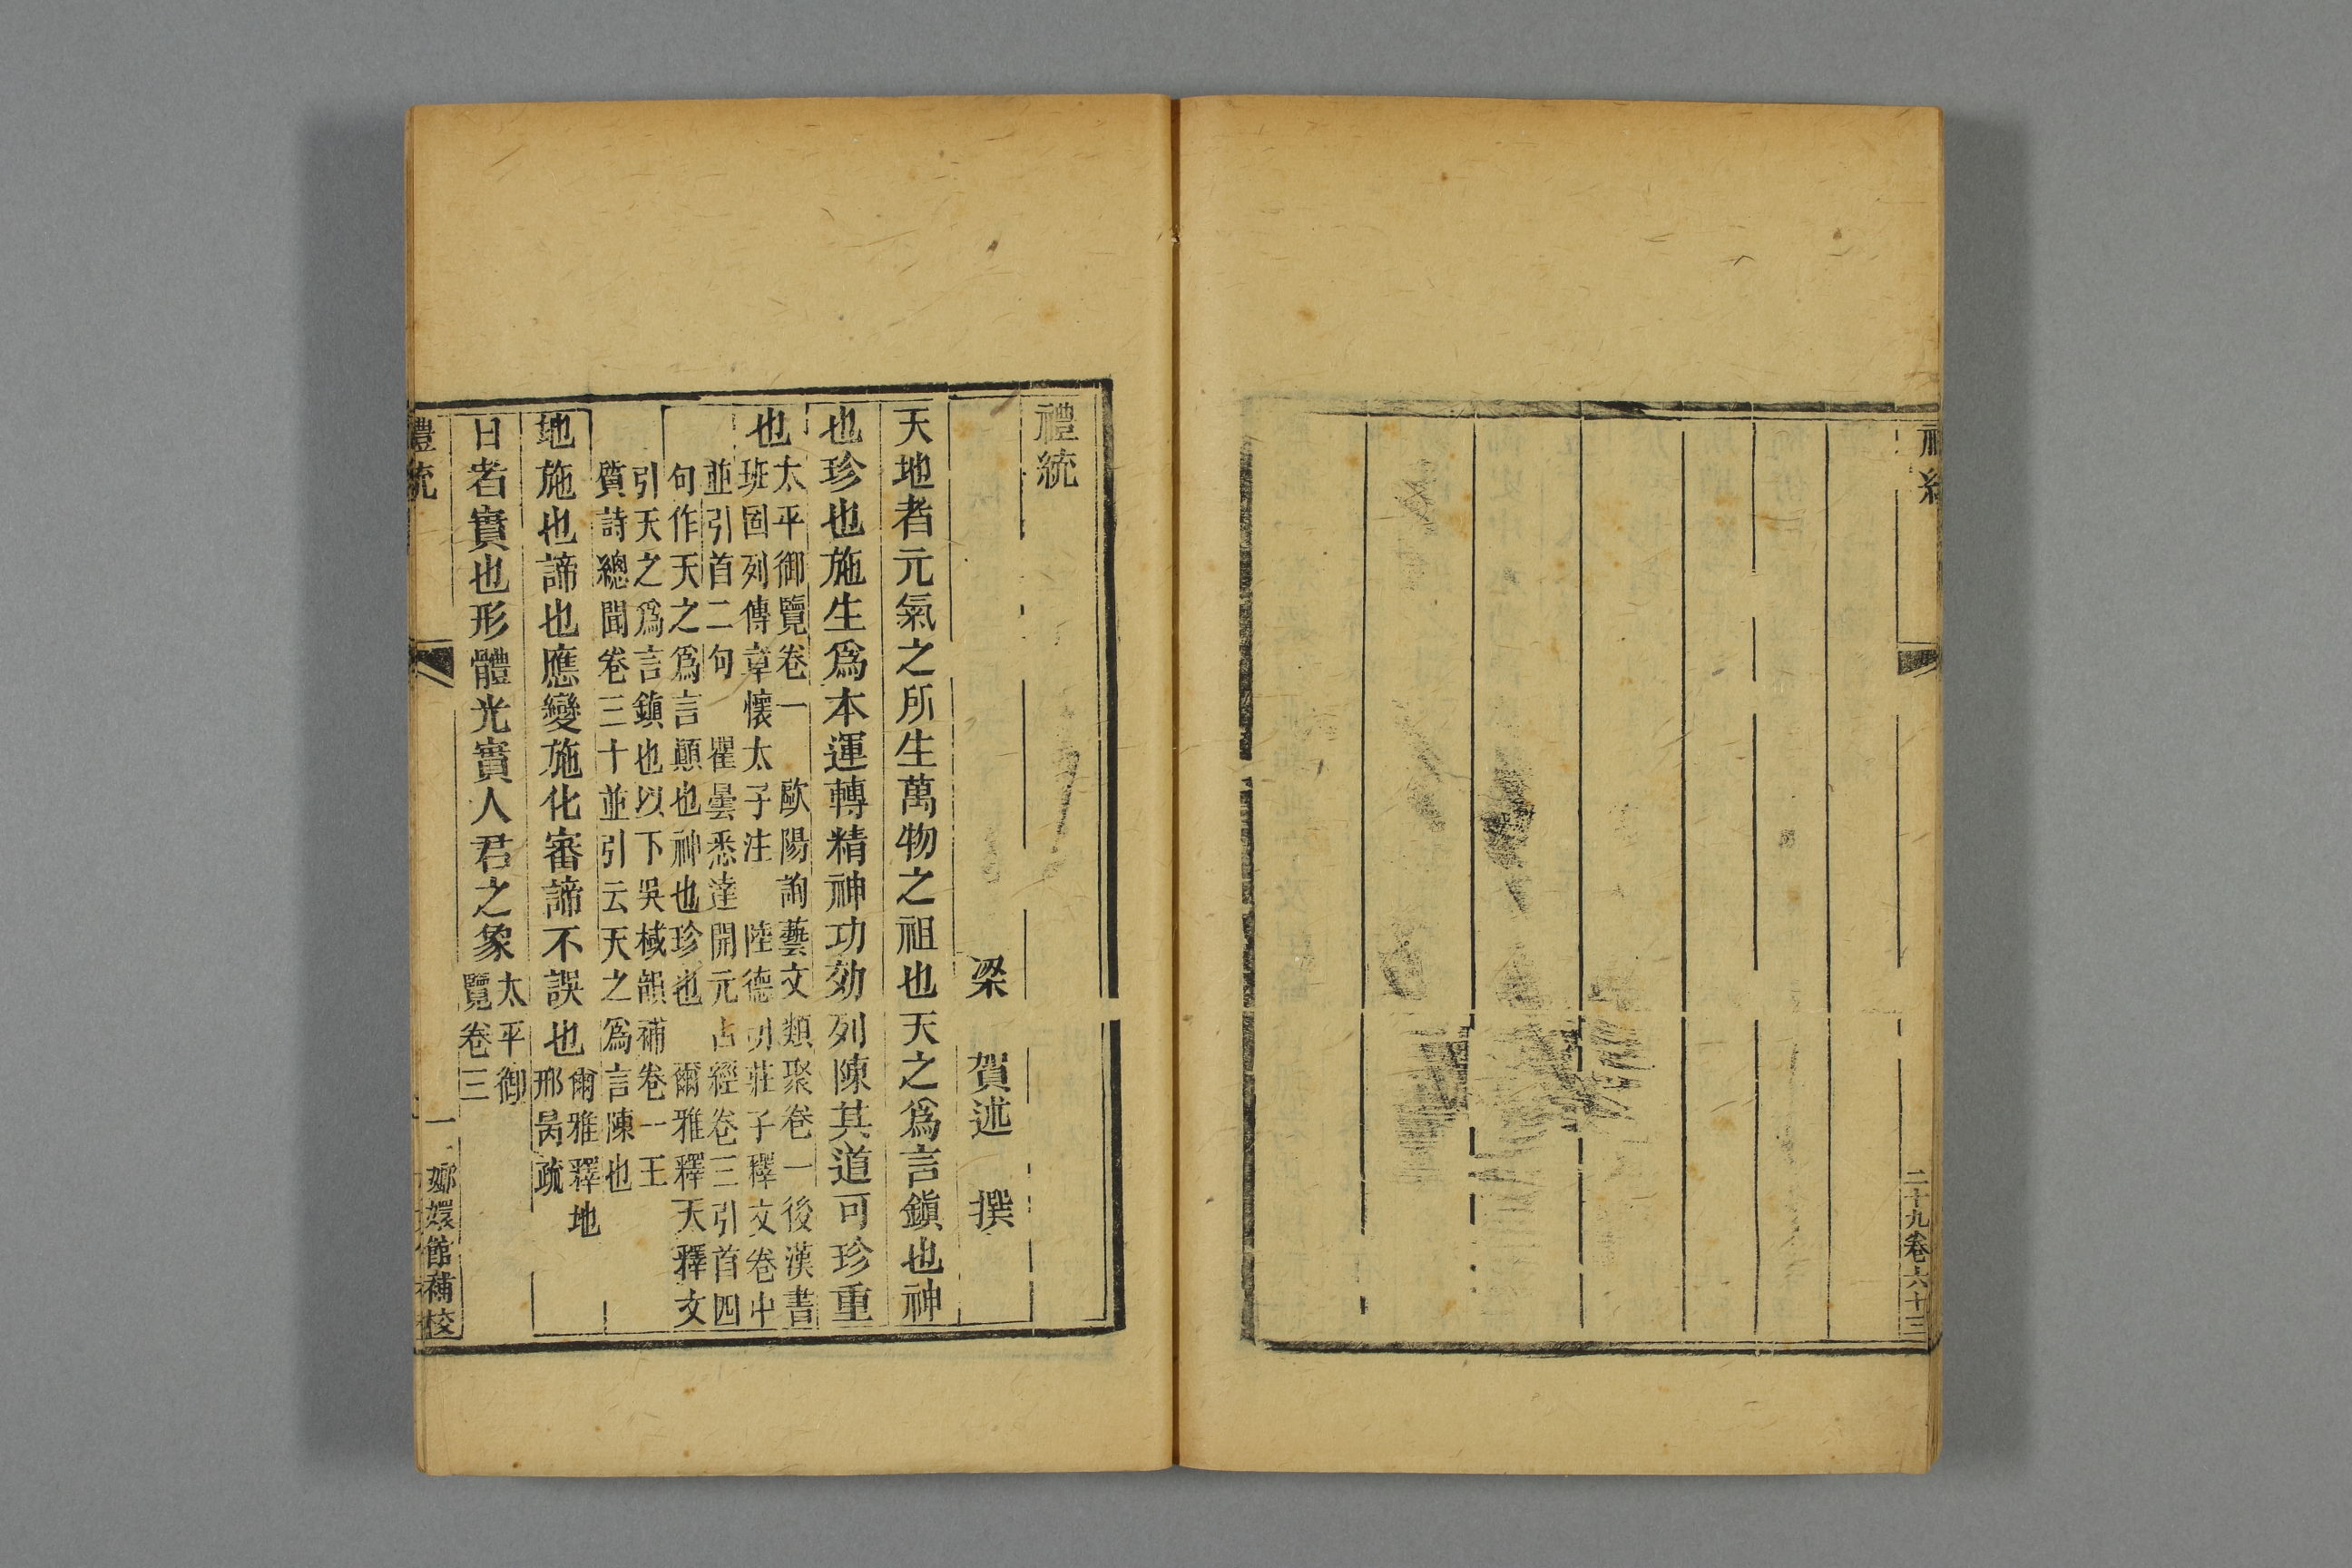 二十九卷六十三
禮統
梁 賀述 撰
天地者元氣之所生萬物之祖也天之爲言鎭也神
也珍也施生爲本運轉精神功効列陳其道可珍重
也
太平御覽卷一 歐陽詢藝文類聚卷一後漢書
班固列傳章懷太子注 陸德明莊子釋文卷中
並引首二句 瞿曇悉達開元占經卷三引首四
句作天之爲言顚也神也珍也 爾雅釋天釋文
引天之爲言鎭也以下吳棫韻補卷一王
質詩總聞卷三十並引云天之爲言陳也
地施也諦也應變施化審諦不誤也
爾雅釋地
邢昺疏
日者實也形體光實人君之象
太平御
覽卷三
禮統
一
嫏嬛館補校